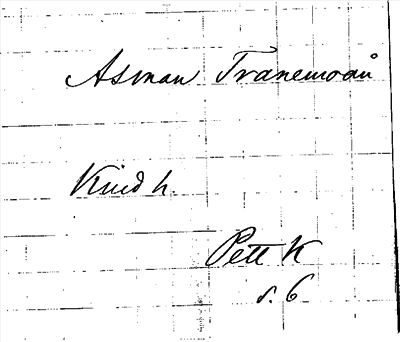 Åsman Tranemoån
Kind h.
Pett K
s. 6